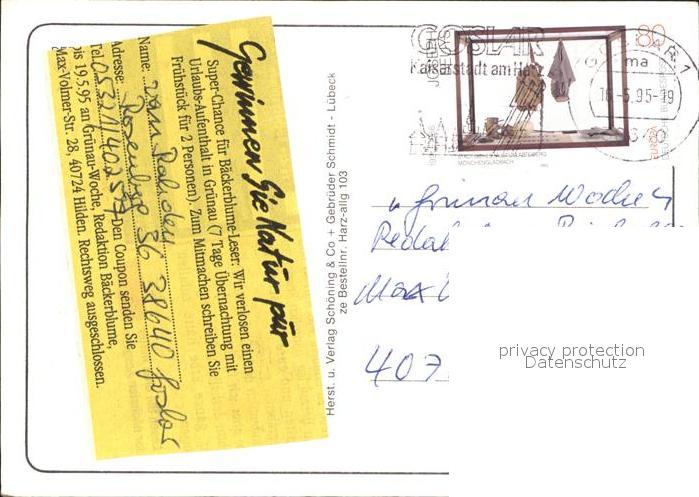 Gewinnen Sie Natur pur
Super-Chance für Bäckerblume-Leser: Wir verlosen einen
Urlaubs-Aufenthalt in Grünau (7 Tage Übernachtung mit
Frühstück für 2 Personen). Zum Mitmachen schreiben Sie
Name:
Adresse: Rosenhge 36 38640 Goslar
Tel. Den Coupon senden Sie
bis 19.5.95 an Grünau-Woche, Redaktion Bäckerblume,
Max-Volmer-Str. 28, 40724 Hilden. Rechtsweg ausgeschlossen.
Herst. u. Verlag Schöning & Co + Gebrüder Schmidt - Lübeck
ze Bestellnr. Harz-allg 103
GOSLAR
Kaiserstadt am Harz
80
JOSEPH
ma
16.-5.95-19
EUROPA
MÖNCHENGLADBACH
„Grünau Woche"
Redak
Max
407
privacy protection
Datenschutz